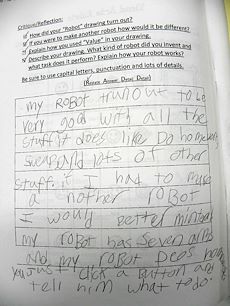 Critique/Reflection:
How did your "Robot" drawing turn out?
If you were to make another robot how would it be different?
Explain how you used "Value" in your drawing.
Describe your drawing. What kind of robot did you invent and
what task does it perform? Explain how your robot works?
Be sure to use capital letters, punctuation and lots of details.
(Restate, Answer, Detail, Detail)
my RoBot trun out to be
very good with all the
stuff it does like Do homework
sweap and lots of other
stuff. if I had to make
a nother roBot
I would better
my roBot has seven arms
and my roBot Does
you Just click a button and
tell him what to do.